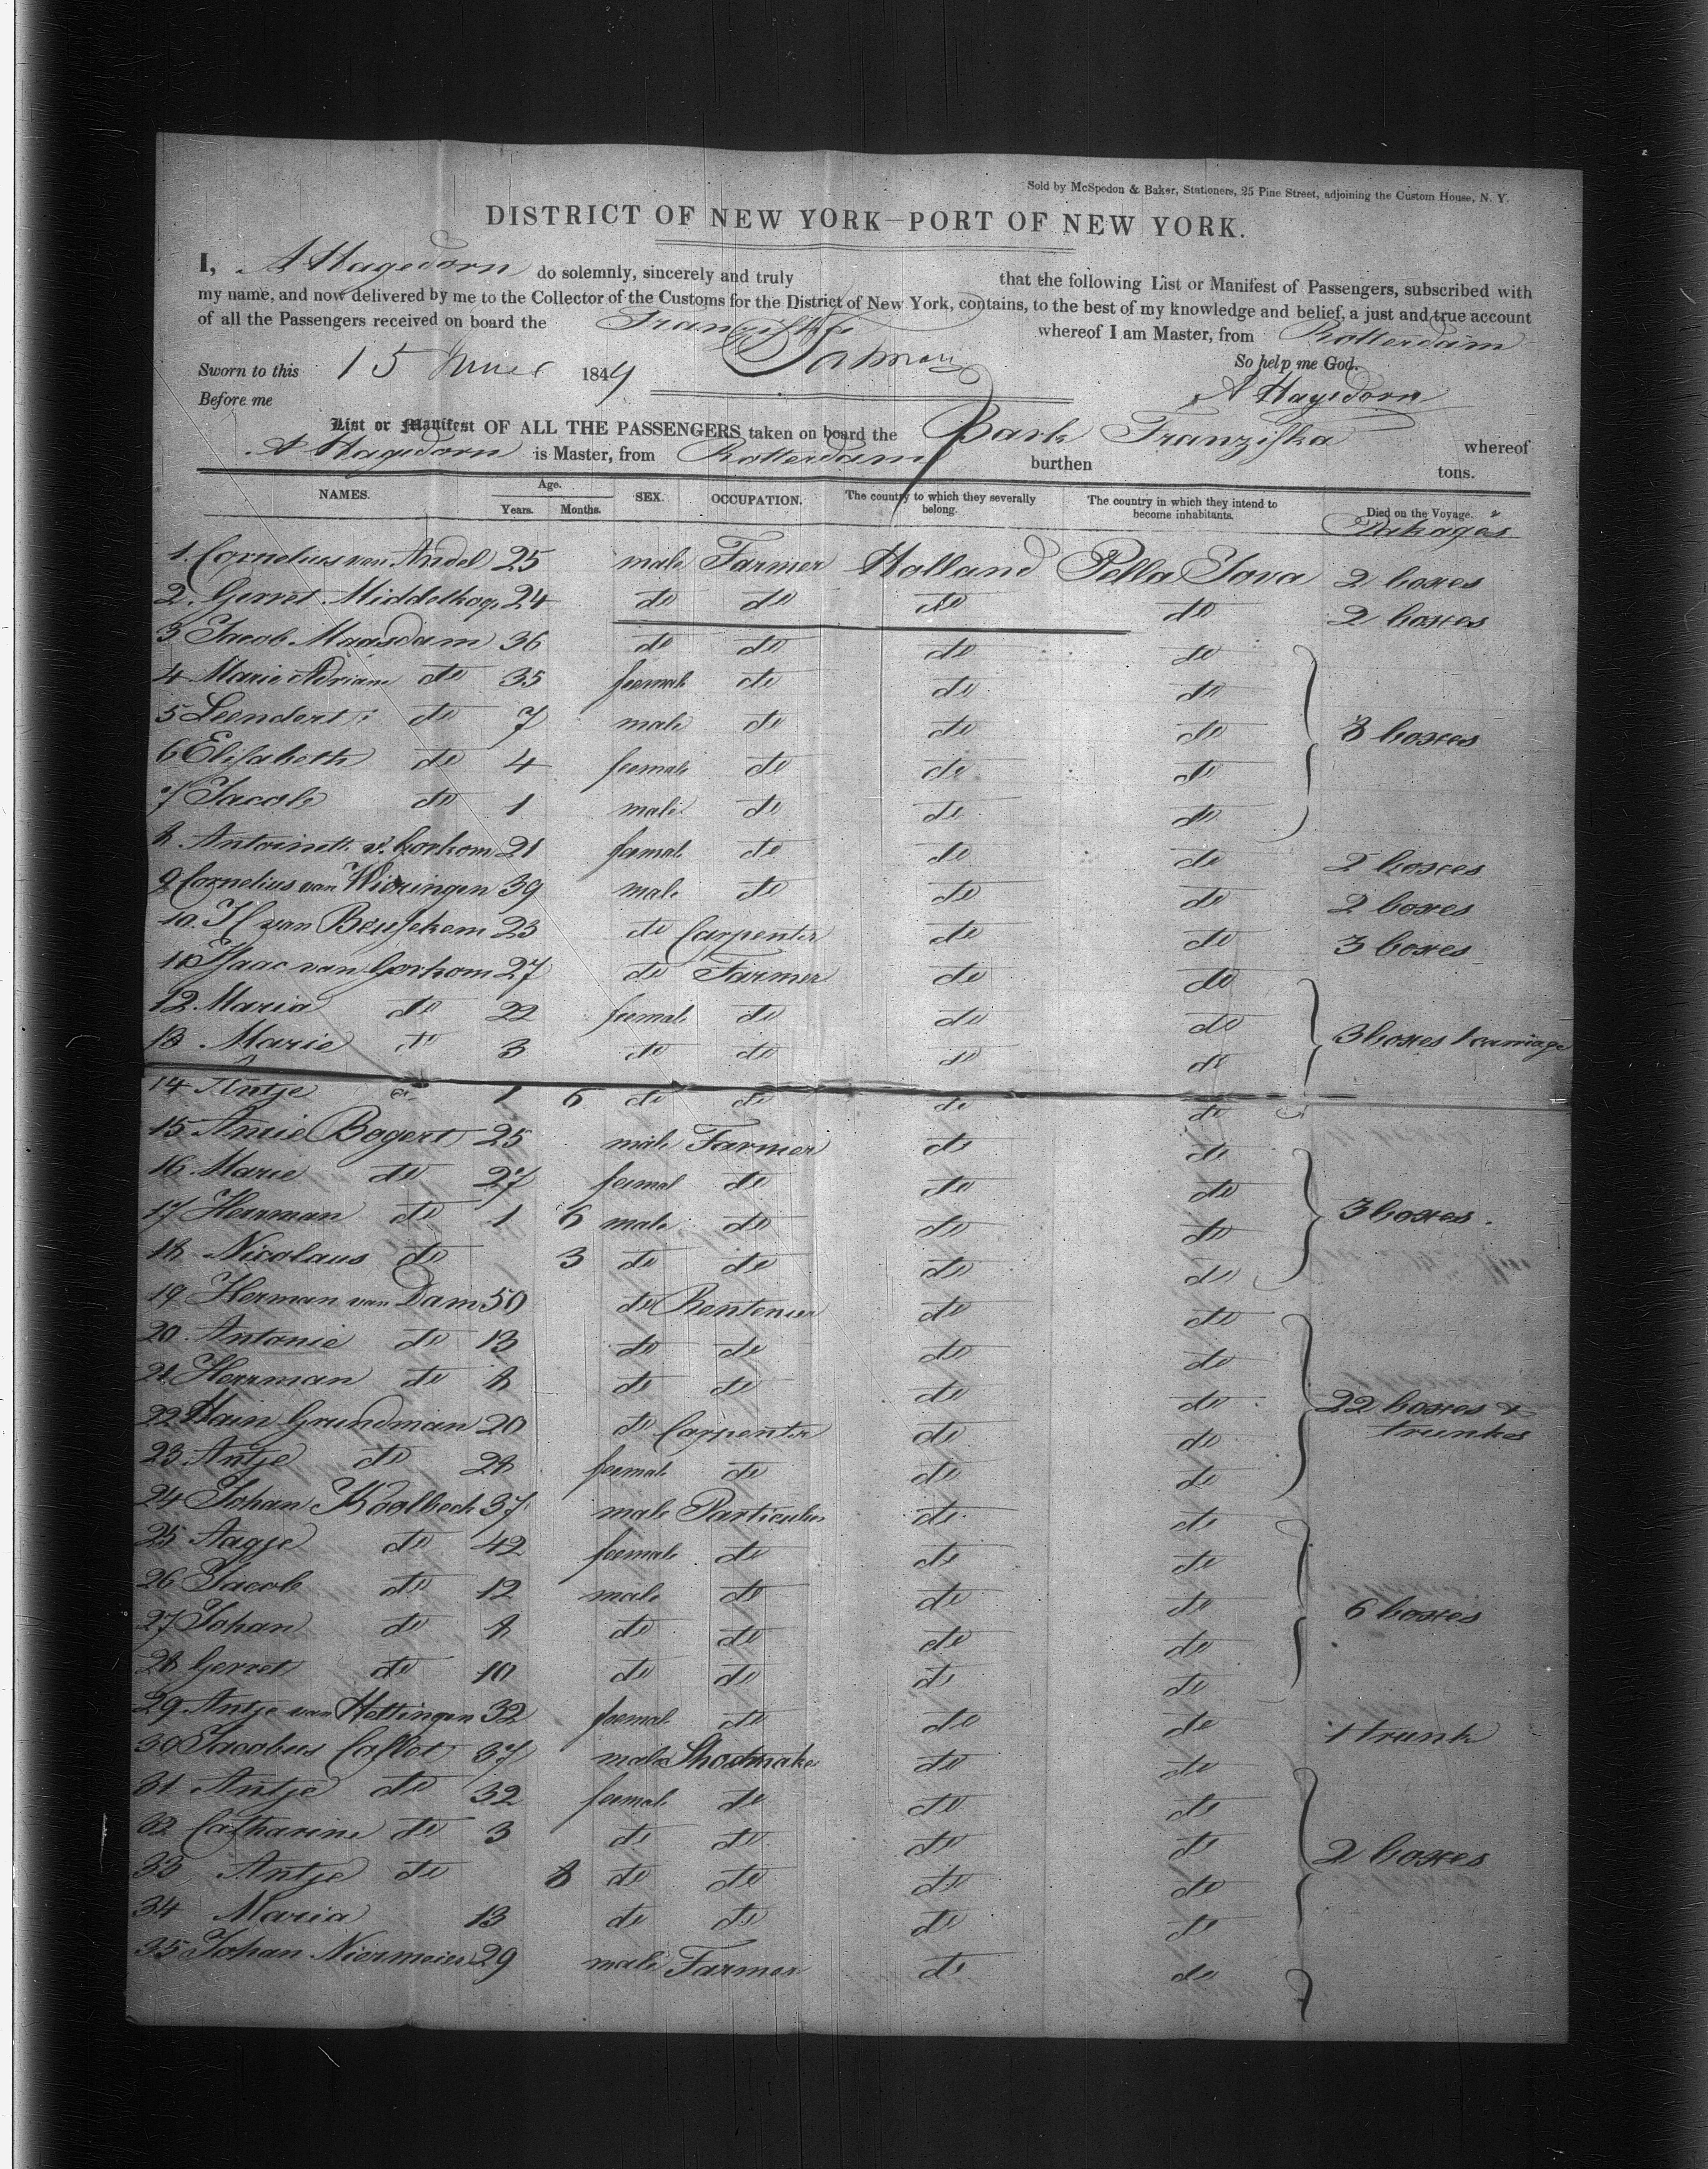 Sold by McSpedon & Baker, Stationers, 25 Pine Street, adjoining the Custom House, N. Y.
DISTRICT OF NEW YORK—PORT OF NEW YORK.
I, A Hagedorn do solemnly, sincerely and truly that the following List or Manifest of Passengers, subscribed with
my name, and now delivered by me to the Collector of the Customs for the District of New York, contains, to the best of my knowledge and belief, a just and true account
of all the Passengers received on board the Franziska whereof I am Master, from Rotterdam
So help me God.
Sworn to this 15 June 1849
A Hagedorn
Before me
List or Manifest OF ALL THE PASSENGERS taken on board the Bark Franziska whereof
A Hagedorn is Master, from Rotterdam burthen tons.
NAMES. Age. Years. Months. SEX. OCCUPATION. The country to which they severally belong. The country in which they intend to become inhabitants. Died on the Voyage.
Pakages
1. Cornelius van Andel 25 male Farmer Holland Pella Iova 2 boxes
2. Gerret Middelkop 24 do do do do 2 boxes
3 Jacob Maasdam 36 do do do do
4 Marie Adriane do 35 feemale do do do
5 Leendert do 7 male do do do 3 boxes
6 Elisabeth do 4 feemale do do do
7 Jacob do 1 male do do do
8 Antoinett v. Gorkom 21 feemale do do do 2 boxes
9 Cornelius van Wieringen 39 male do do do 2 boxes
10. H van Beusekem 23 do Carpenter do do 3 boxes
11 Isaac van Gorkom 27 do Farmer do do
12 Maria do 22 feemale do do do
13 Marie do 3 do do do do 3 boxes 1 carriage
14 Antje do 1 6 do do do do
15 Arie Bogert 25 male Farmer do do
16 Marie do 27 feemal do do do
17 Herrman do 1 6 male do do do 3 boxes.
18 Nicolaus do 3 do do do do
19 Herman van Dam 50 do Rentenier do do
20. Antonie do 13 do do do do
21 Herrman do 8 do do do do
22 Hain Grundman 20 do Carpenter do do 22 boxes &
trunkes
23. Antje do 28 feemale do do do
24 Johan Koolbeck 37 male Particulier do do
25 Aagje do 42 feemale do do do
26 Jacob do 12 male do do do
27 Johan do 8 do do do do 6 boxes
28 Gerret do 10 do do do do
29 Antje van Hettingen 32 feemale do do do 1 trunk
30 Jacobus Caflot 37 male Shoemaker do do
31 Antje do 32 feemale do do do
32 Catharine do 3 do do do do
33 Antje do 8 do do do do 2 boxes
34 Maria 13 do do do do
35 Johan Niermeier 29 male Farmer do do